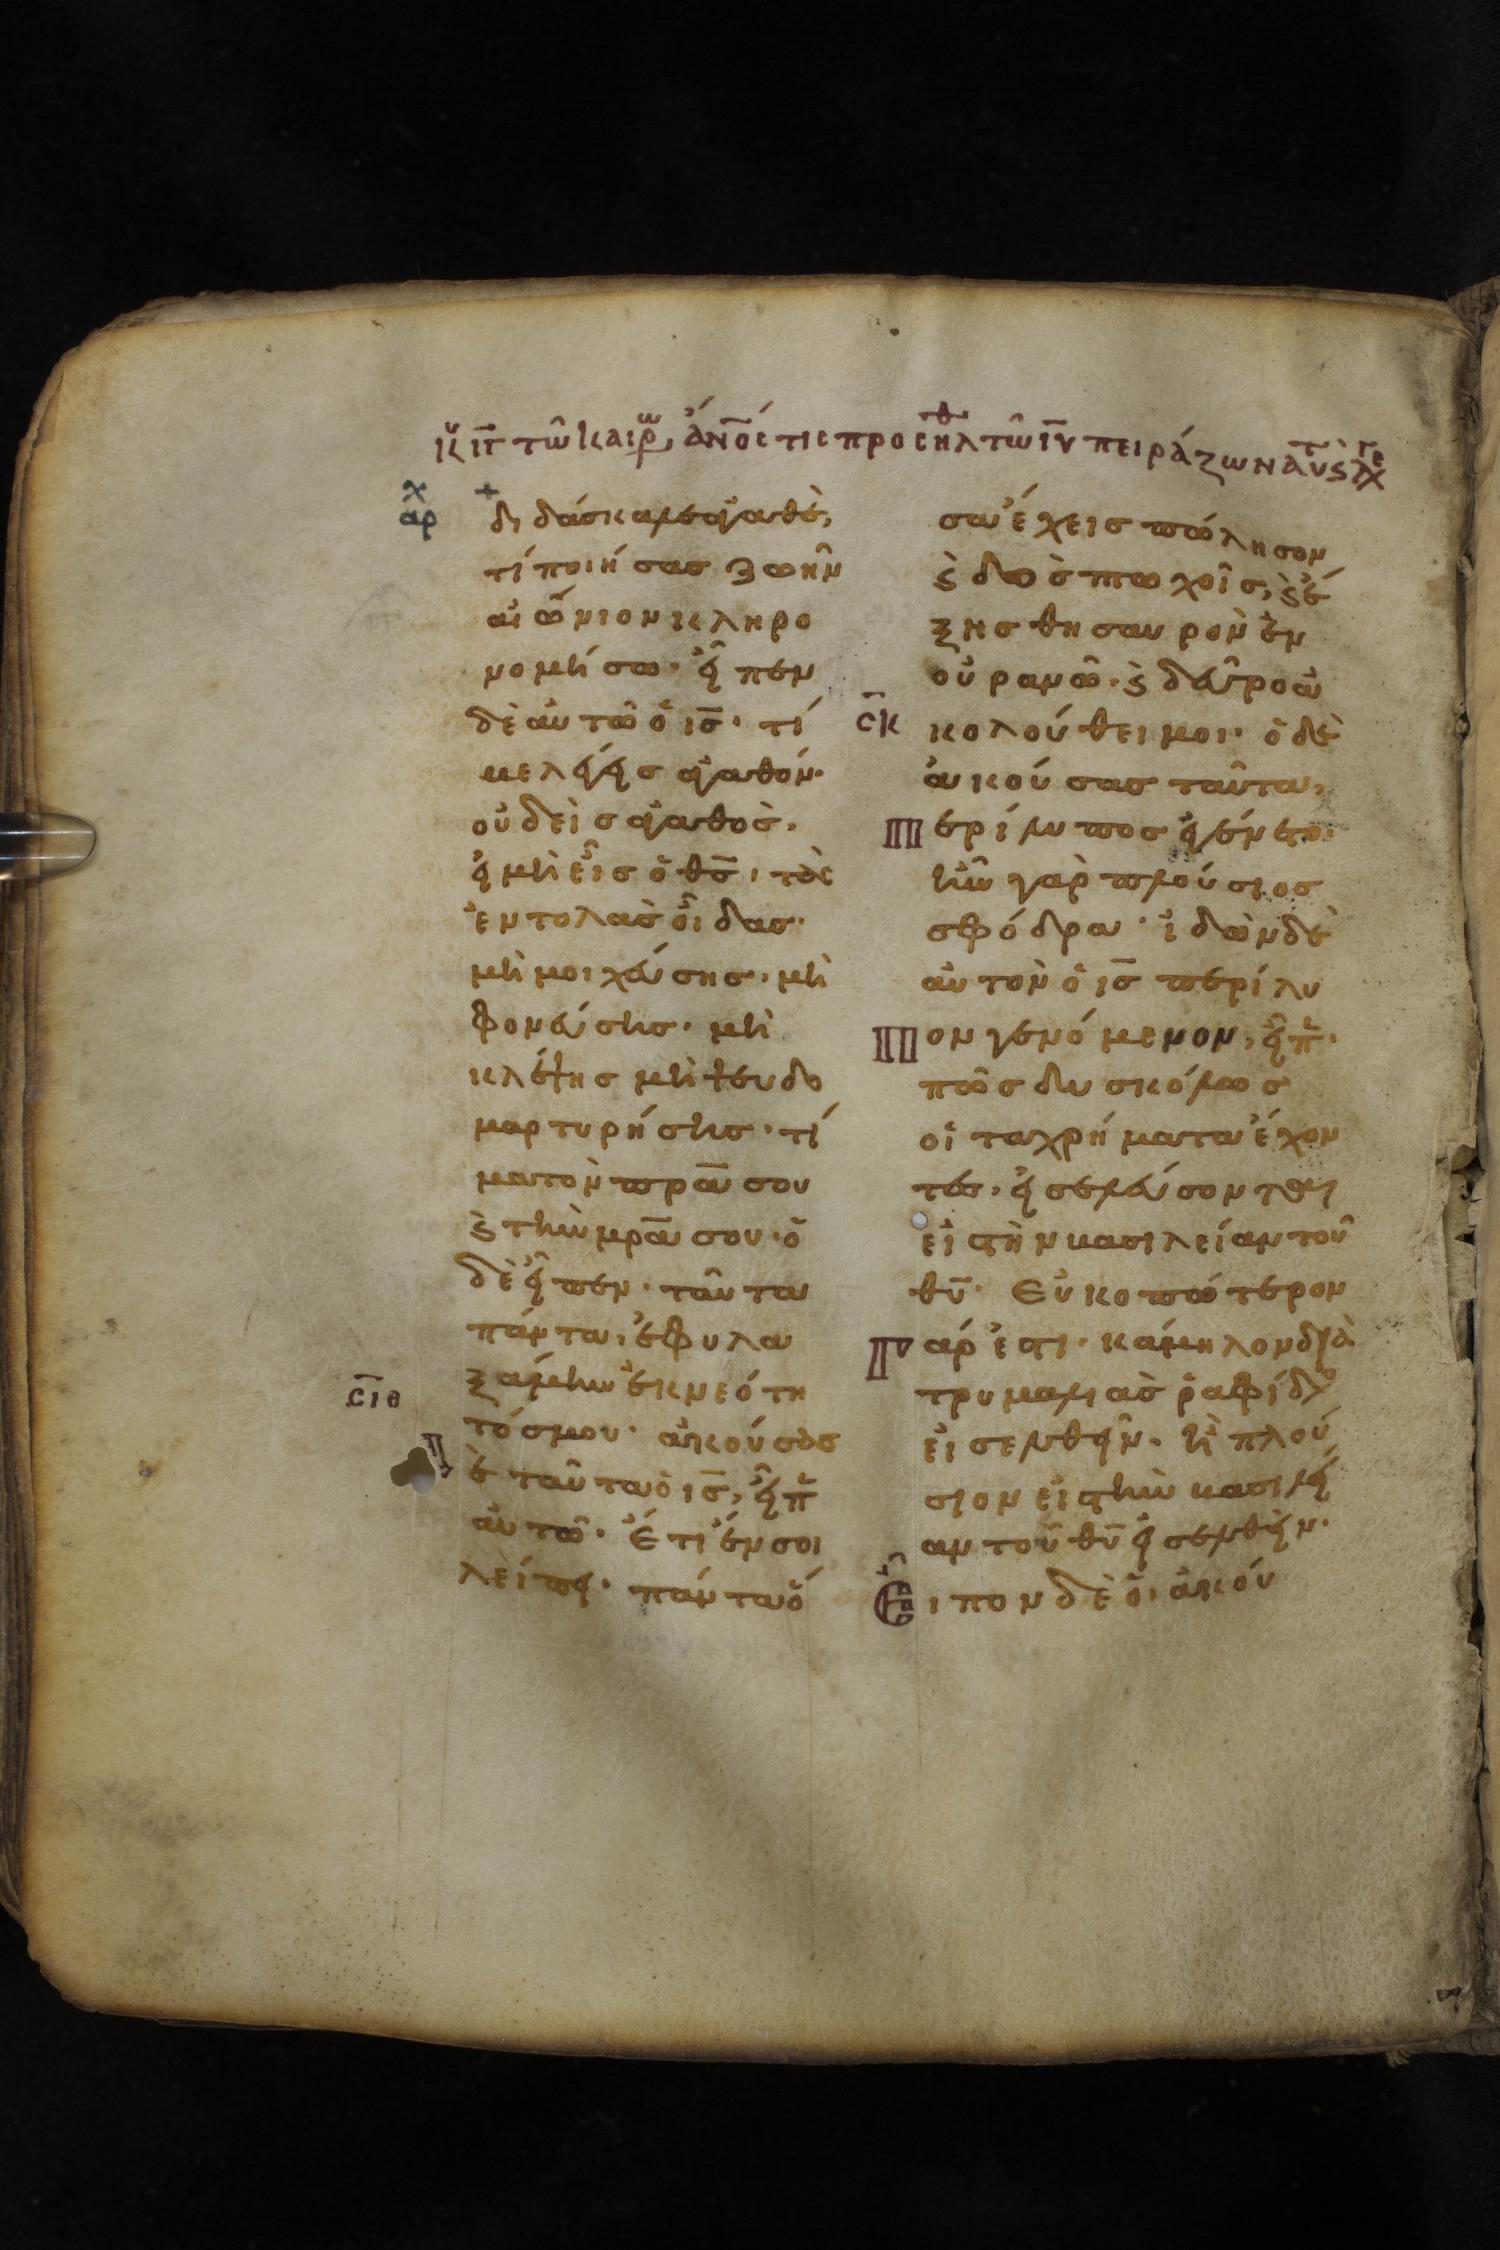 κυ ιγ τῶ καιρῶ, ἀνός τις προσηλθ τῶ ιυ πειράζων αυτ ϛ λεγ
αρχ
διδάσκαλε ἀγαθὲ,
τί ποιήσας ζωὴν
αἰώνιον κληρο
νομήσω· εἶπεν
δὲ αὐτῶ ὁ ις· τί
με λέγεις ἀγαθόν·
οὐδεὶς ἀγαθὸς.
εἰ μὴ εἷς ὁ θς, τὰς
ἐντολὰς οἶδας·
μὴ μοιχεύσης, μὴ
φονεύσης· μὴ
κλέψης μὴ ψευδο
μαρτυρήσης· τί
μα τὸν πρα σου
ϛ τὴν μρα σου· ὁ
δὲ εἶπεν· ταῦτα
πάντα, ἐφυλα
ξάμην ἐκ νεότη
σιθ
τός μου· ἀκούσας
δὲ ταῦτα ὁ ις, εἶπ
αὐτῶ· ἔτι ἕν σοι
λείπει· πάντα ὅ
σα ἔχεις πώλησον
ϛ δὸς πτωχοῖς, ϛ ἕ
ξης θησαυρὸν ἐν
οὐρανῶ· ϛ δεῦρο ἀ
σκ
κολούθει μοι· ὁ δὲ
ἀκούσας ταῦτα,
περίλυπος ἐγένετο·
ἦν γὰρ πλούσιος
σφόδρα· ἰδὼν δὲ
αὐτὸν ὁ ις περίλυ
πον γενόμενον, εἶπ·
πῶς δυσκόλως
οἱ τα χρήματα ἔχον
τες, εἰσελεύσονται
εἰς τὴν βασιλείαν τοῦ
θυ· Εὐκοπώτερον
γάρ ἐστι· κάμηλον διὰ
τρυμαλιὰς ῥαφίδος
εἰσελθεῖν. ἢ πλού
σιον εἰς τὴν βασιλεί
αν τοῦ θυ εἰσελθεῖν·
Εἶπον δὲ οἱ ἀκού